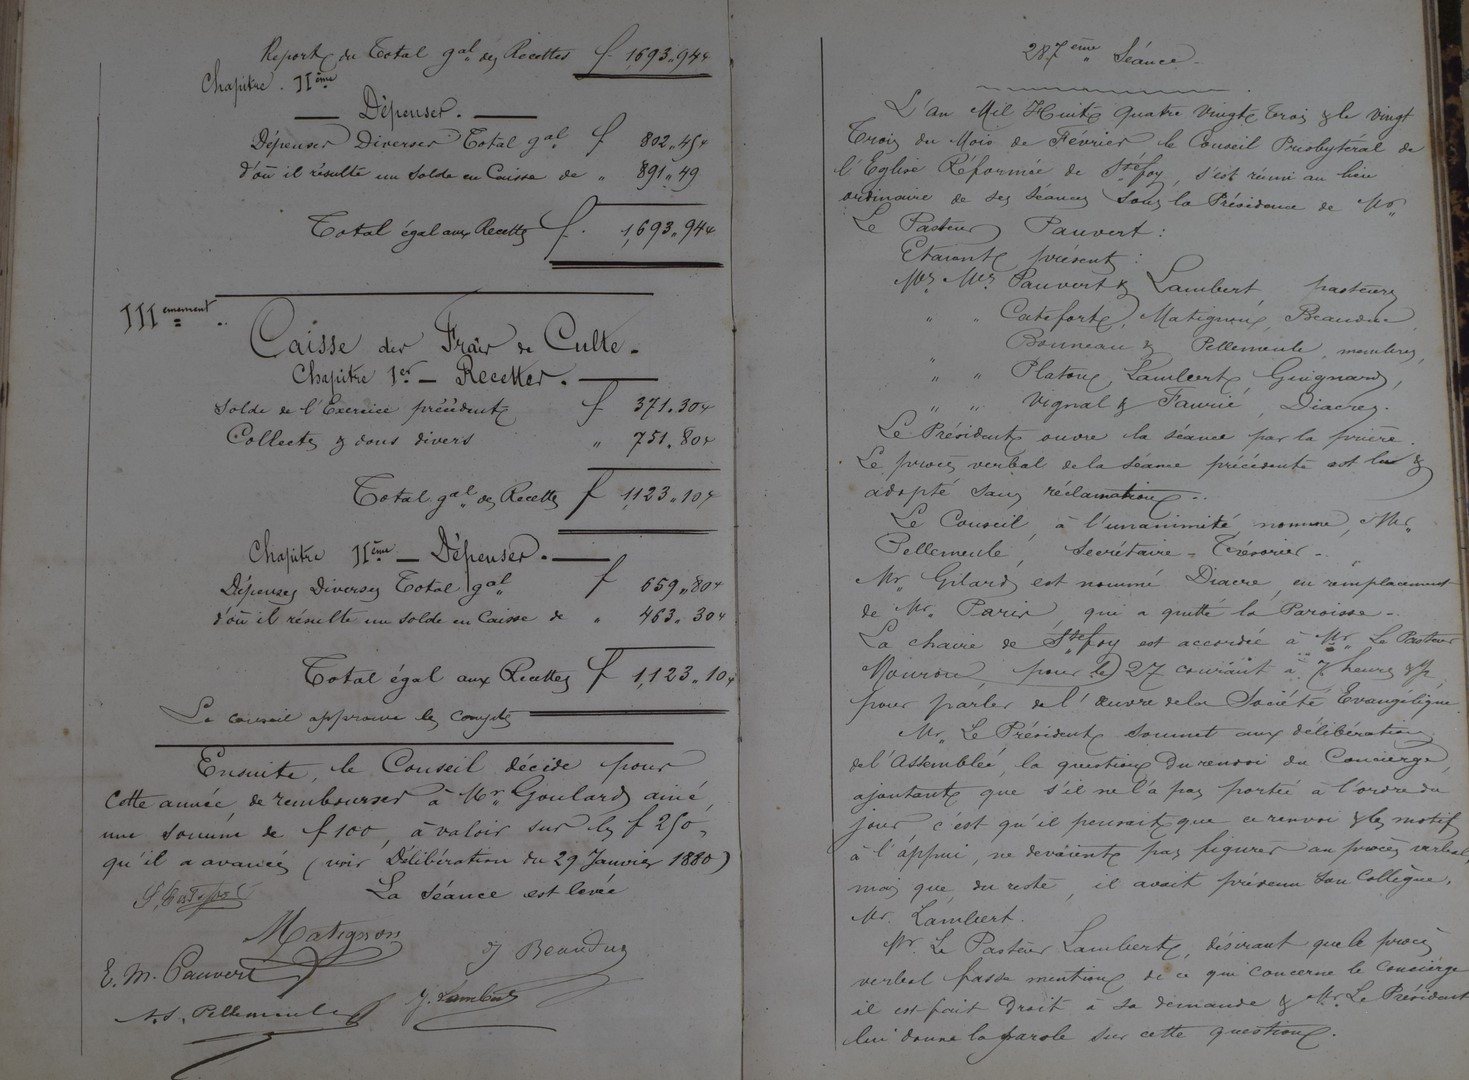 Report du Total gal des Recettes f 1,693.94c
Chapitre IIème
Dépenses.
Dépenses Diverses Total gal f 802.45c
d'où il résulte un solde en Caisse de " 891.49
Total égal aux Recettes f. 1,693.94c
IIIemement
Caisse des Frais de Culte.
Chapitre 1er — Recettes.
Solde de l'Exercice précédent f 371.30c
Collectes & dons divers " 751.80c
Total gal des Recettes f 1,123.10c
Chapitre IIème — Dépenses.
Dépenses Diverses Total gal f 659.80c
d'où il résulte un solde en Caisse de " 463.30c
Total égal aux Recettes f 1,123.10c
Le conseil approuve les comptes
Ensuite, le Conseil décide pour
cette année de rembourser à Mr Goulard ainé,
une somme de f 100, à valoir sur les f 250,
qu'il a avancés (voir Délibération du 29 Janvier 1880)
La Séance est levée
Matignon
J Beauduy
E. M. Pauvert
J. Lambert
Pellemeule
287ème Séance.
L'an Mil Huit Quatre Vingt Trois & le Vingt
Trois du Mois de Février le Conseil Presbytéral de
l'Eglise Réformée de Ste foy, s'est réuni au lieu
ordinaire de ses séances sous la Présidence de Mr
Le Pasteur Pauvert :
Etaient présents :
Mrs Mrs Pauvert & Lambert, pasteurs
" " Catefort, Matignon, Beauduy
Bonneau & Pellemeule, membres,
" " Platon, Lambert, Guignard,
" " Vignal & Faurié, Diacres.
Le Président ouvre la séance par la prière.
Le procès verbal de la séance précédente est lu &
adopté sans réclamation.
Le Conseil, à l'unanimité nomme, Mr
Pellemeule, Secrétaire - Trésorier.
Mr Gilard est nommé Diacre, en remplacement
de Mr Paris qui a quitté la Paroisse.
La chaire de Ste foy est accordée à Mr Le Pasteur
Mouron, pour le 27 courant à 7 heures & 1/2
pour parler de l'œuvre de la Société Evangélique
Mr Le Président soumet aux délibérations
de l'Assemblée, la question du renvoi du Concierge,
ajoutant que s'il ne l'a pas portée à l'ordre du
jour c'est qu'il pensait que ce renvoi & les motifs
à l'appui, ne devaient pas figurer au procès verbal,
mais que du reste, il avait prévenu son Collègue,
Mr. Lambert.
Mr. Le Pasteur Lambert, désirant que le procès
verbal fasse mention de ce qui concerne le Concierge
il est fait Droit à sa demande & Mr. Le Président
lui donne la parole sur cette question.